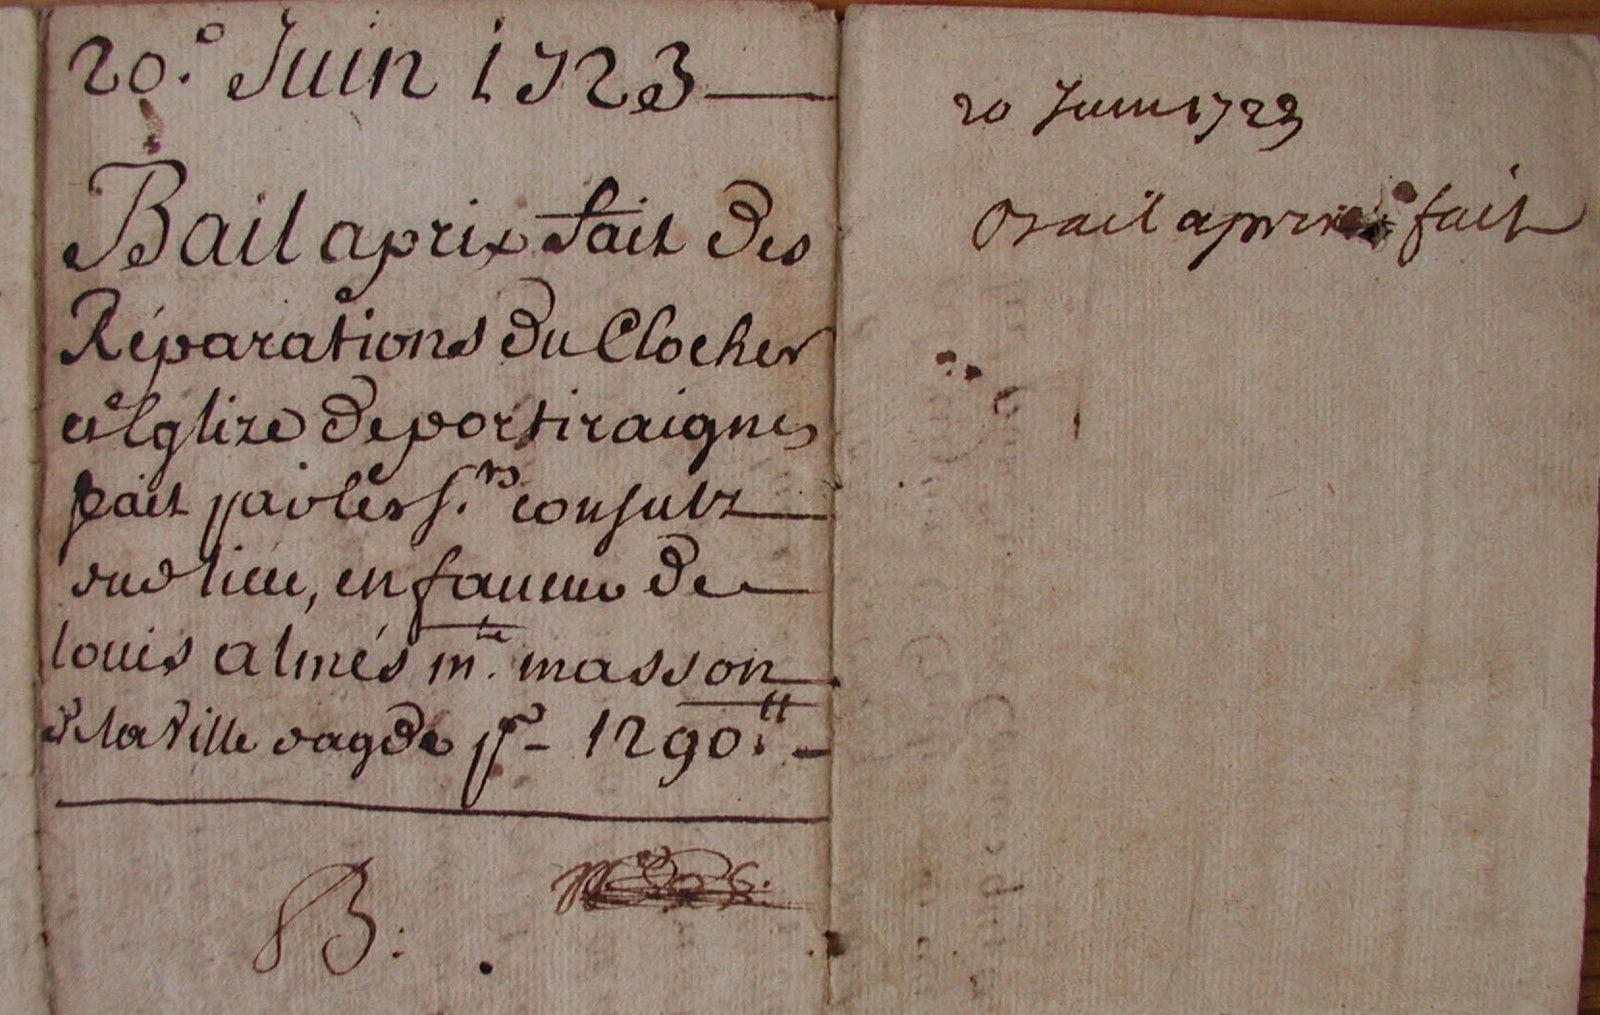 20.e Juin 1723
Bail aprix fait des
Réparations du Clocher
et Eglize de portiraignes
fait par les s.rs consulz
dud lieu, en faueur de
louis almés m.e masson
de la Ville dagde pr - 1290.tt
B:
20 Juin 1723
Bail aprix fait